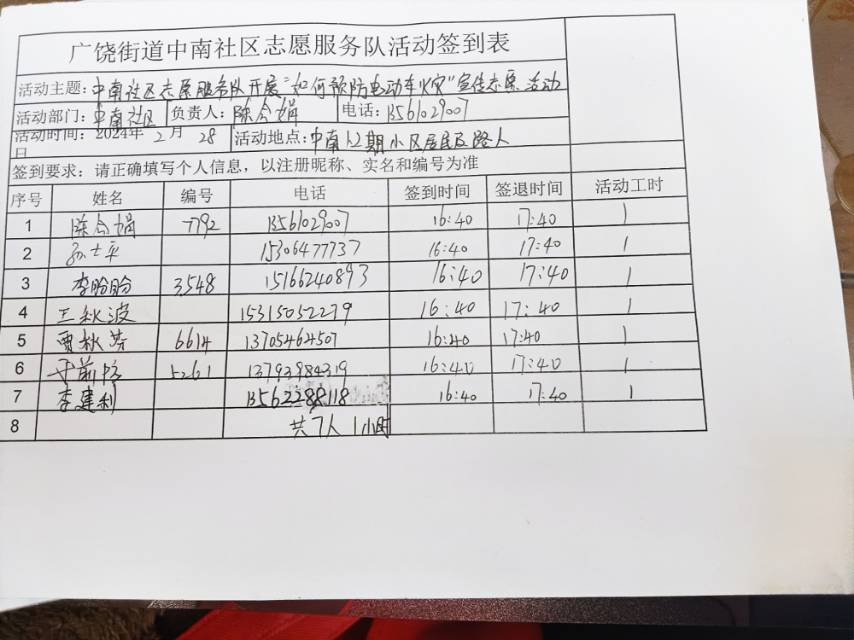 广饶街道中南社区志愿服务队活动签到表
活动主题：中南社区志愿服务队开展“如何预防电动车火灾”宣传志愿活动
活动部门：中南社区 负责人：陈会娟 电话：13561029007
活动时间：2024年2月28日 活动地点：中南1.2期小区居民及路人
签到要求：请正确填写个人信息，以注册昵称、实名和编号为准
序号 姓名 编号 电话 签到时间 签退时间 活动工时
1 陈会娟 7792 13561029007 16:40 17:40 1
2 孙士平 15306477737 16:40 17:40 1
3 李盼盼 3548 15166240893 16:40 17:40 1
4 王秋波 15315052279 16:40 17:40 1
5 贾秋芳 6614 13705464507 16:40 17:40 1
6 5261 13793984319 16:40 17:40 1
7 李建利 13562288118 16:40 17:40 1
8 共7人 1小时